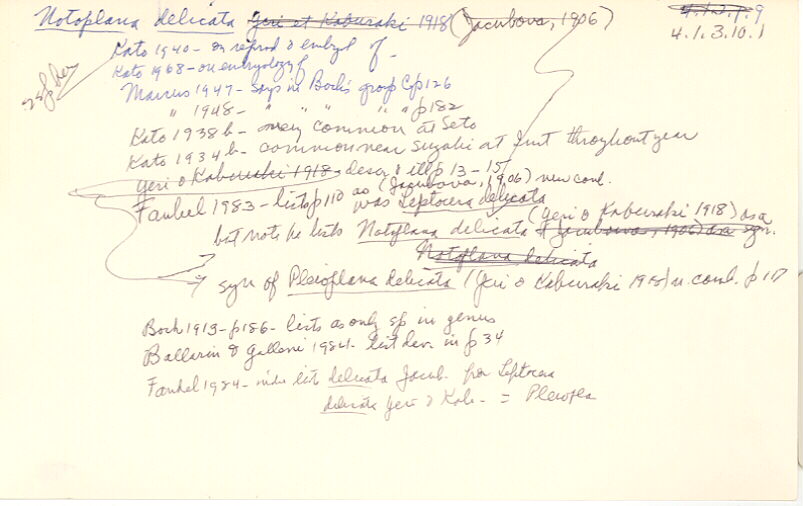 Notoplana delicata Yeri et Kaburaki 1918 (Jacubova, 1906)
4.1.2.1.9
4.1.3.10.1
Kato 1940 - on reprod & embryol of -
Kato 1968 - on embryology of
Marcus 1947 - says in Bock's group C p 126
" 1948 - " " " " " p 182
Kato 1938b - very common at Seto
Kato 1934b - common near Suzaki at Jmt throughout year
Yeri & Kaburaki 1918 - descr & ill p 13 - 15
Faubel 1983 - lists p 110 as (Jacubova, 1906) new comb.
was Leptocera delicata
but note he lists Notoplana delicata (Yeri & Kaburaki 1918) as a
& Jacubowa, 1906) as a syn.
Notoplana delicata
syn of Pleioplana delicata (Yeri & Kaburaki 1918) n. comb. p 117
Bock 1913 - p 186 - lists as only sp in genus
Ballarin & Galleni 1984 - list dev. in p 34
Faubel 1984 - index list delicata Jacub. for Leptocera
delicata Yeri & Kab. - = Pleiopla